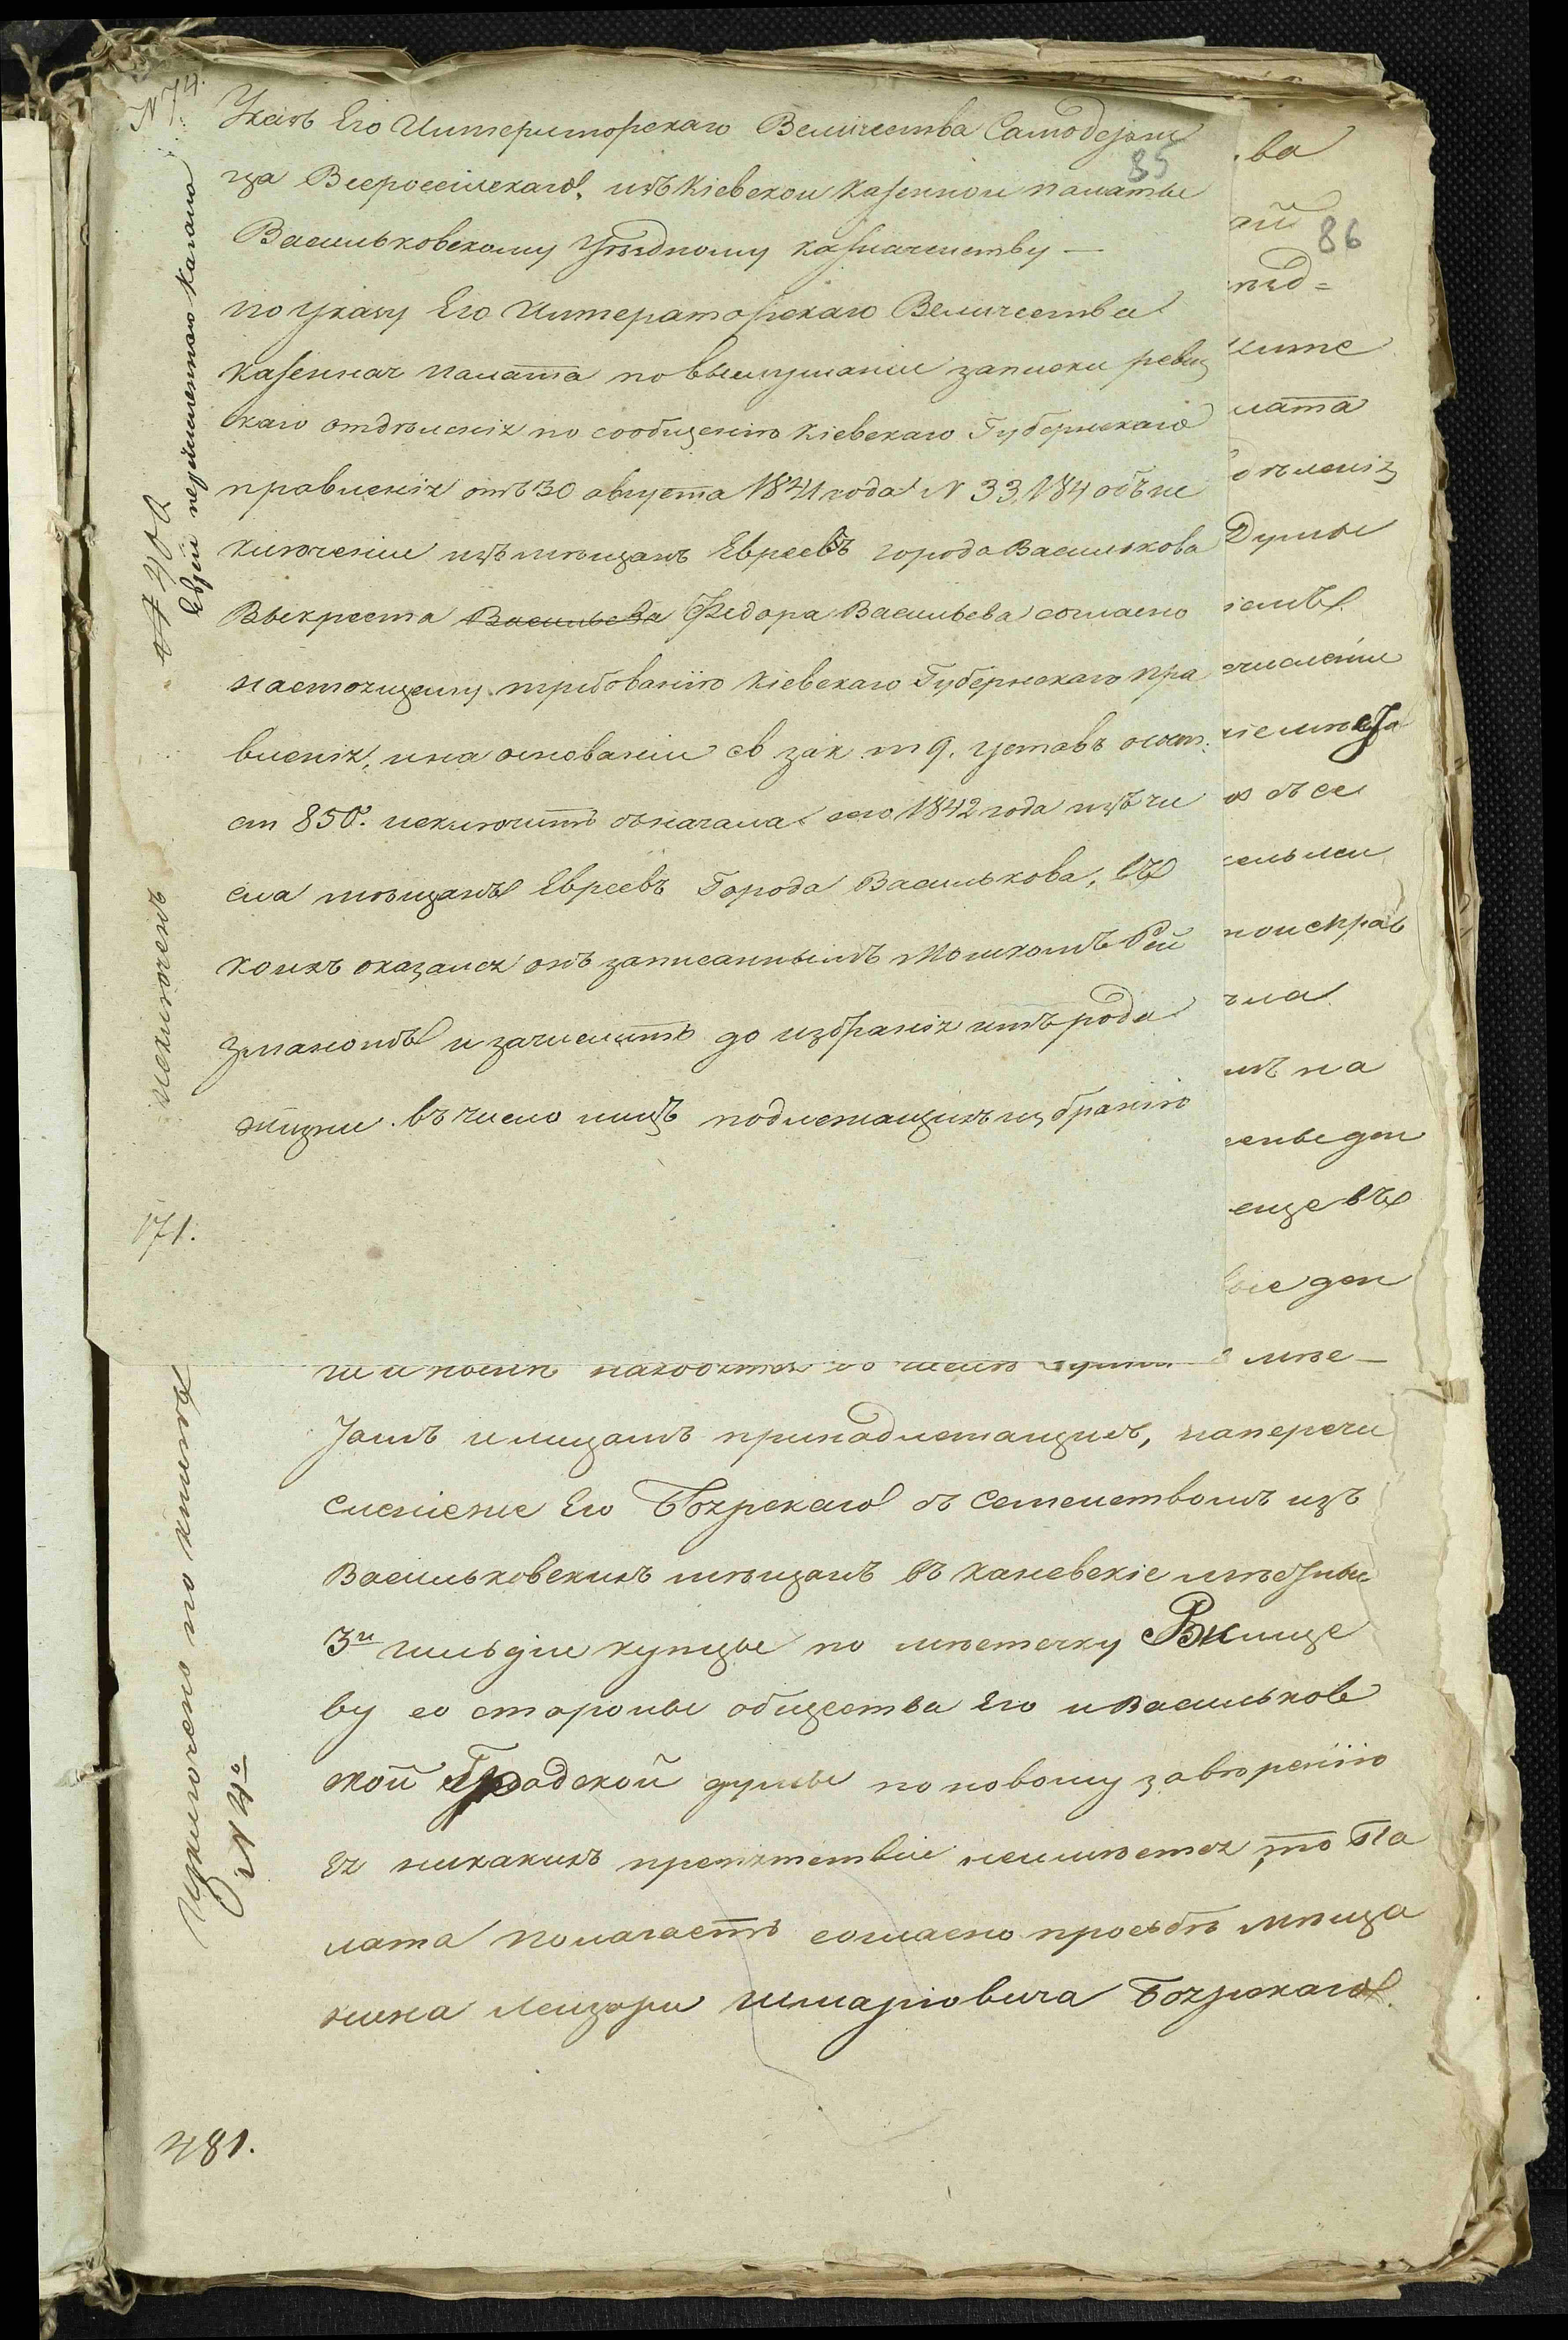 N 74.
85
Указъ Его Императорскаго Величества Самодерж
ца Всероссійскаго, изъ Кіевской Казенной палаты
Васильковскому Уѣздному казначейству —
по указу Его Императорскаго Величества
казенная палата повыслушаніи записки ревиз
скаго отдѣленія по сообщенію Кіевскаго Губернскаго
правленія отъ 30 августа 1841 года N 33,184 объ ис
ключеніи изъ мѣщанъ Евреевъ города Василькова
Выкреста Васильева Федора Васильева согласно
настоящему требованію Кіевскаго Губернскаго пра
вленія, и на основаніи св зак т 9. уставъ о сост.
ст 850. исключить съ начала сего 1842 года изъ чи
сла мѣщанъ Евреевъ Города Василькова, въ
коихъ оказался онъ записаннымъ Мошкомъ Рей
зманомъ и зачислить до избранія имъ рода
жизни въ число лицъ подлежащихъ избранію
исключенъ
171.
86
ва
ѣзд=
лата
дѣленія
Думы
численіи
съ се
на
еще въ
ше и нынѣ находится въ
замъ и лицамъ принадлежащимъ, на перечи
сленіе Его Бояр­скаго съ семействомъ изъ
Васильковскихъ мѣщанъ въ Каневскіе
3й гильдіи купцы по мѣстечку Ржище
ву со стороны общества Его и Васильков
ской Градской думы по новому завѣренію
Ея никакихъ препятствій не имѣется, то Па
лата полагаетъ согласно просьбѣ мѣща
нина Лейзора Боярскаго
Изключено по книгѣ
N 4й
481.